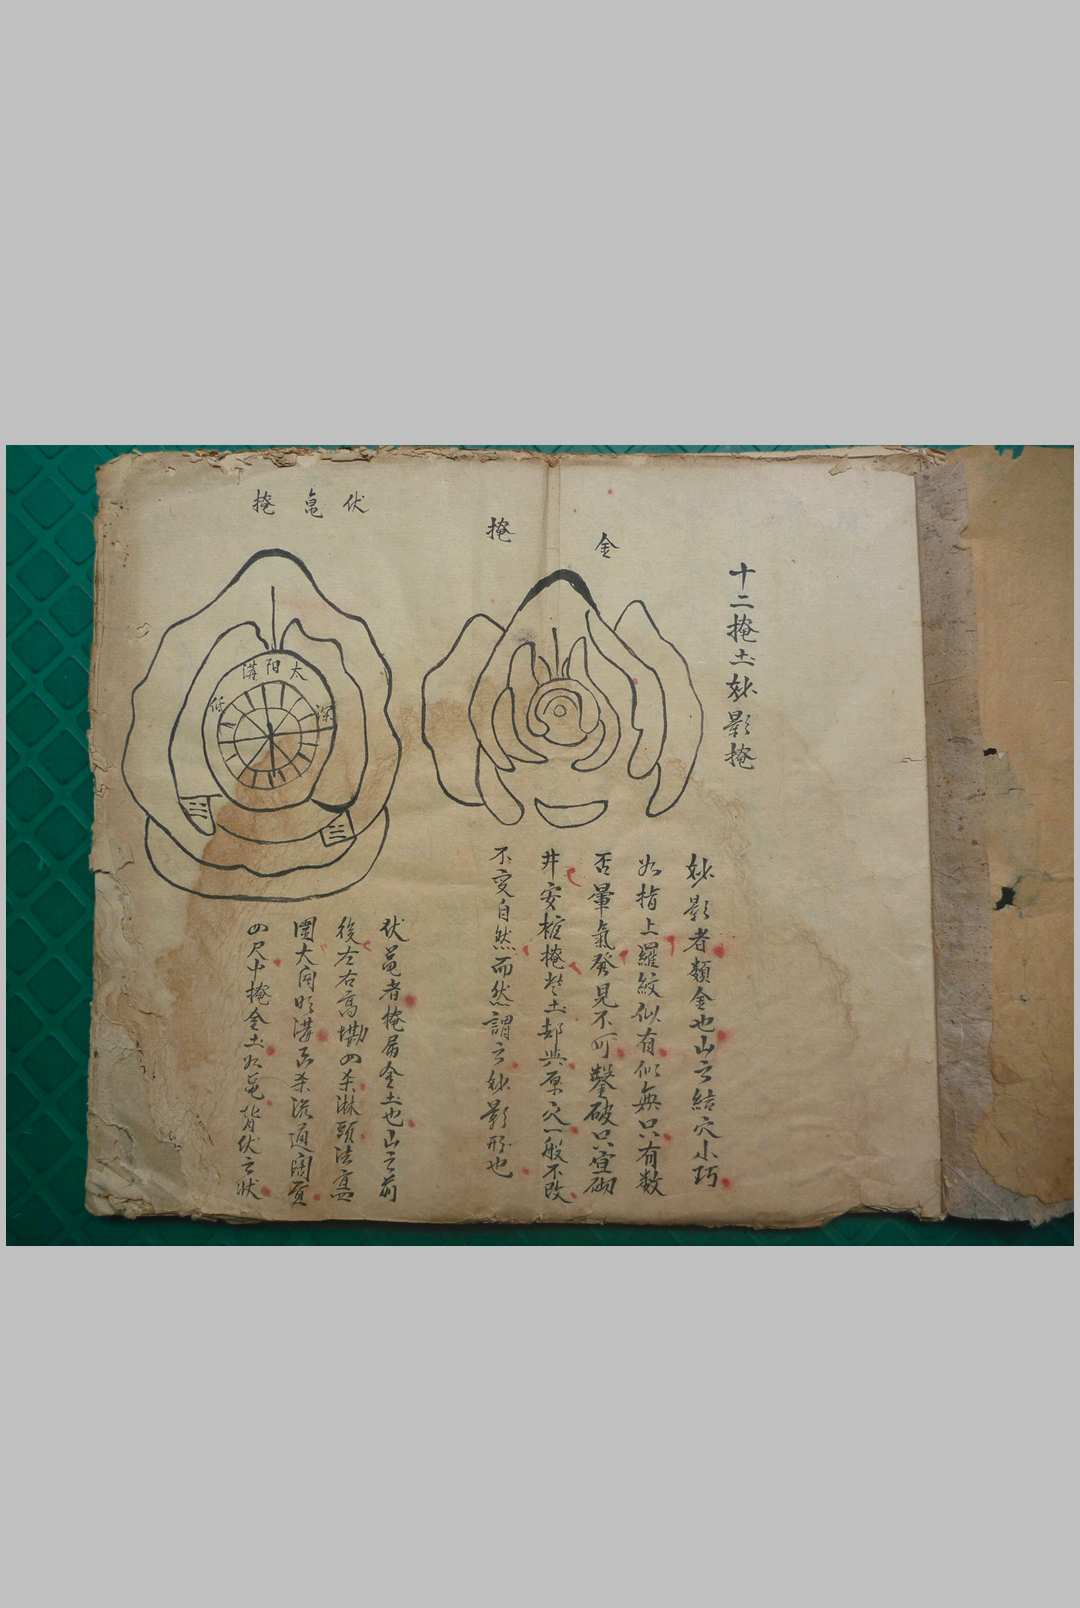 十二掩土妙影掩
金 掩
妙影者類金也山之結穴小巧
如指上羅紋似有似無只有数
否暈氣發見不可鑿破只宜砌
井安棺掩土却與原穴一般不改
不变自然而然謂之妙影形也
伏龟掩
太阳溝
深
低
伏龟者掩局全土也山之前
後左右高 四杀淋頭法宜
開大向明溝 杀 通 直
四尺中掩全土如龟背伏之状